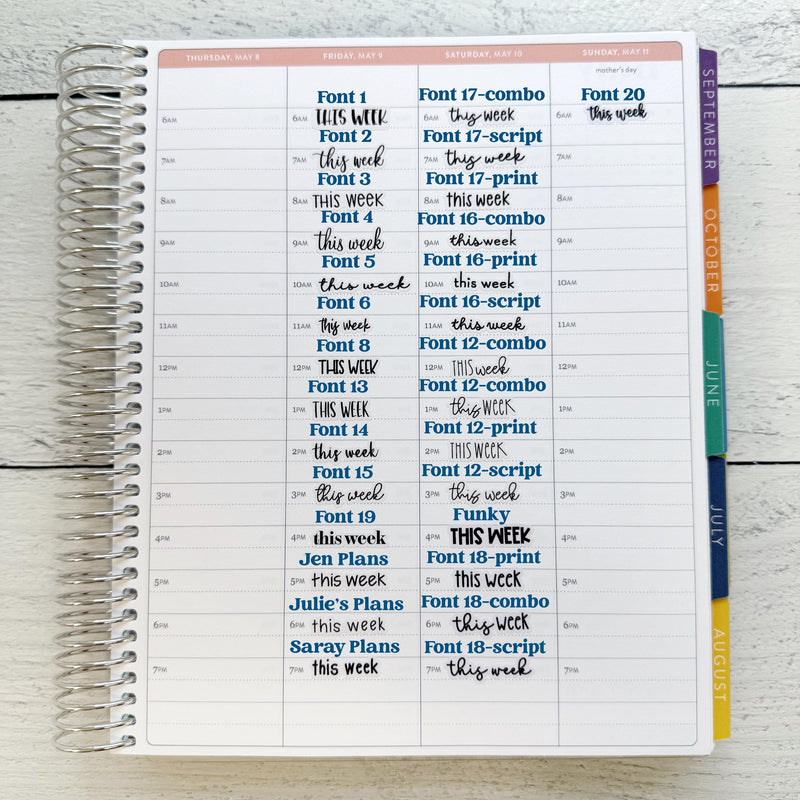 THURSDAY, MAY 8
FRIDAY, MAY 9
SATURDAY, MAY 10
SUNDAY, MAY 11
mother's day
6AM
7AM
8AM
9AM
10AM
11AM
12PM
1PM
2PM
3PM
4PM
5PM
6PM
7PM
Font 1
6AM THIS WEEK
Font 2
7AM this week
Font 3
8AM THIS WEEK
Font 4
9AM this week
Font 5
10AM this week
Font 6
11AM this week
Font 8
12PM THIS WEEK
Font 13
1PM THIS WEEK
Font 14
2PM this week
Font 15
3PM this week
Font 19
4PM this week
Jen Plans
5PM this week
Julie's Plans
6PM this week
Saray Plans
7PM this week
Font 17-combo
6AM this week
Font 17-script
7AM this week
Font 17-print
8AM this week
Font 16-combo
9AM this week
Font 16-print
10AM this week
Font 16-script
11AM this week
Font 12-combo
12PM THIS week
Font 12-combo
1PM this WEEK
Font 12-print
2PM THIS WEEK
Font 12-script
3PM this week
Funky
4PM THIS WEEK
Font 18-print
5PM this week
Font 18-combo
6PM this WEEK
Font 18-script
7PM this week
Font 20
6AM this week
7AM
8AM
9AM
10AM
11AM
12PM
1PM
2PM
3PM
4PM
5PM
6PM
7PM
SEPTEMBER
OCTOBER
JUNE
JULY
AUGUST